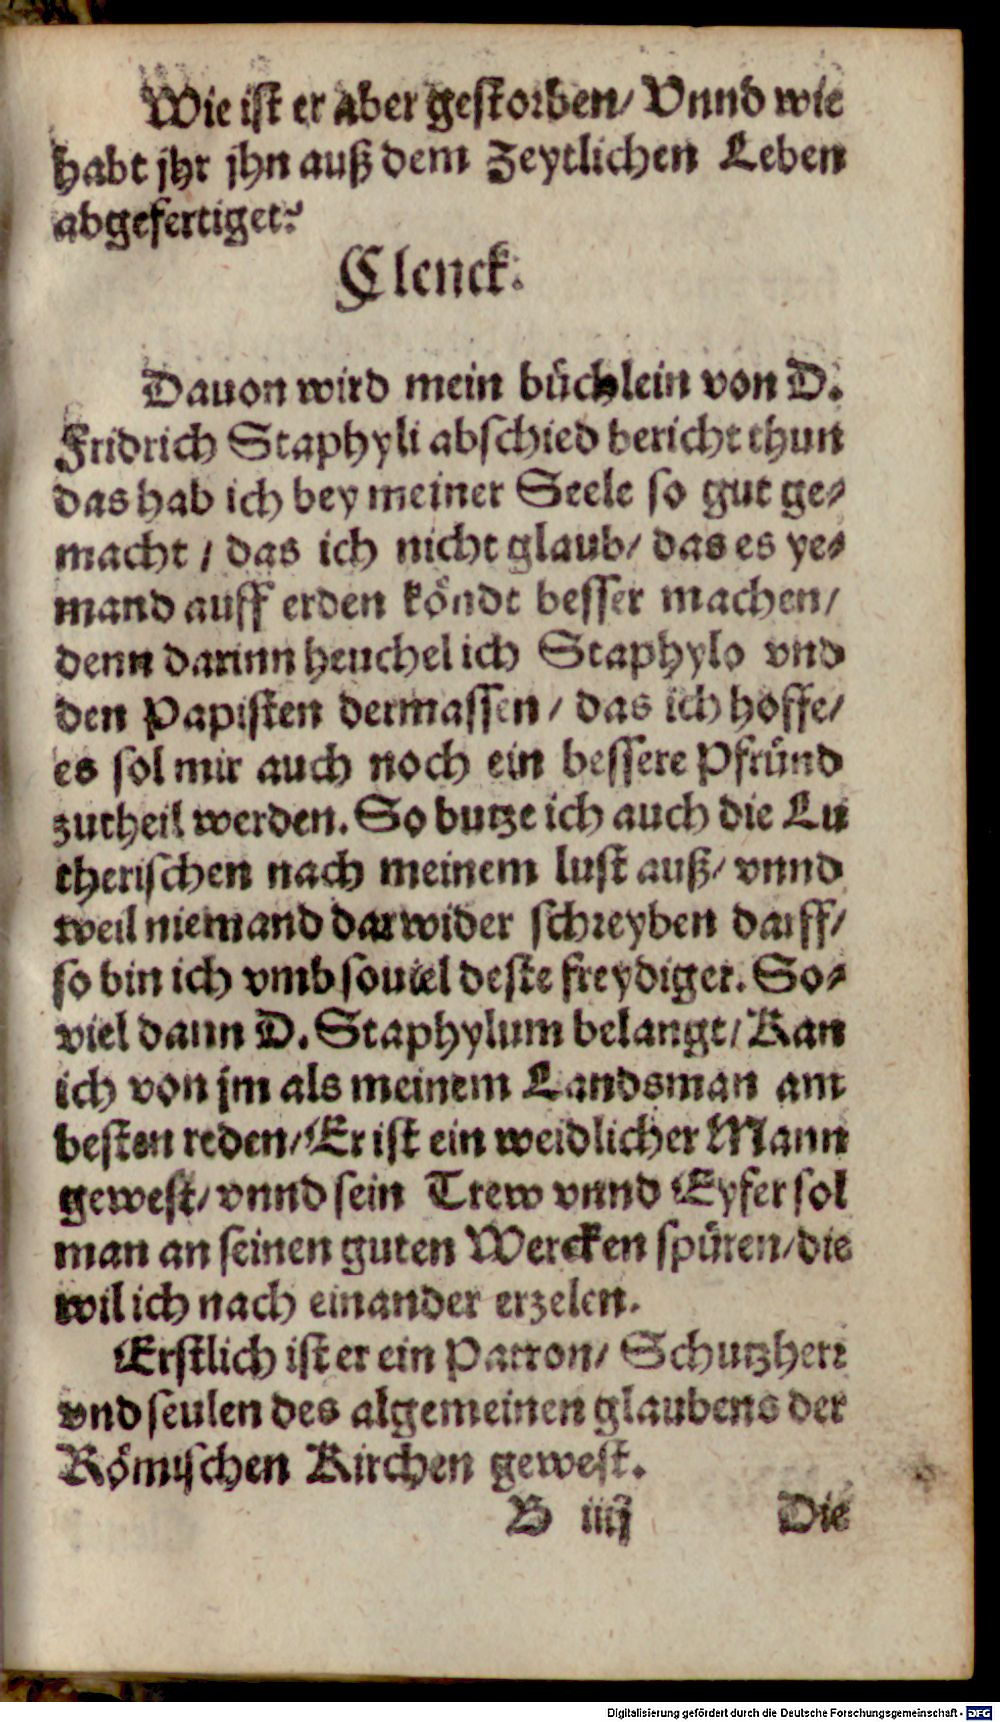 Wie ist er aber gestorben/ Vnnd wie
habt jhr jhn auß dem Zeytlichen Leben
abgefertiget?
Clenck.
Dauon wird mein büchlein von D.
Fridrich Staphyli abschied bericht thun
das hab ich bey meiner Seele so gut ge-
macht / das ich nicht glaub/ das es ye-
mand auff erden köndt besser machen/
denn darinn heuchel ich Staphylo vnd
den Papisten dermassen / das ich hoffe/
es sol mir auch noch ein bessere Pfründ
zutheil werden. So butze ich auch die Lu
therischen nach meinem lust auß/ vnnd
weil niemand darwider schreyben darff/
so bin ich vmb souiel deste freydiger. So-
viel dann D. Staphylum belangt/ Kan
ich von jm als meinem Landsman am
besten reden/ Er ist ein weidlicher Mann
gewest/ vnnd sein Trew vnnd Eyfer sol
man an seinen guten Wercken spüren/ die
wil ich nach einander erzelen.
Erstlich ist er ein Patron/ Schutzherr
vnd seulen des algemeinen glaubens der
Römischen Kirchen gewest.
B iiij Die
Digitalisierung gefördert durch die Deutsche Forschungsgemeinschaft - DFG